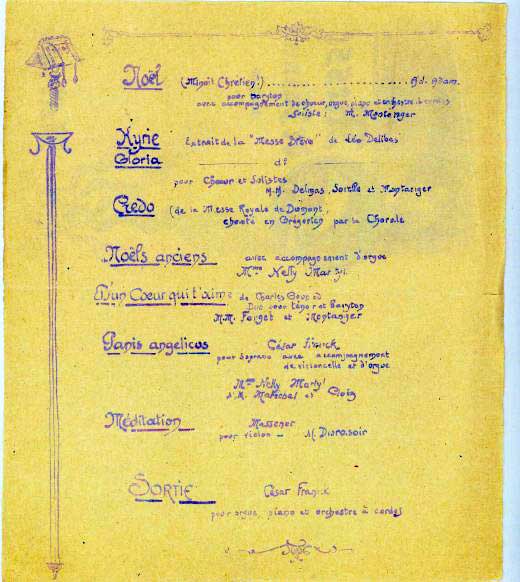 Noël (Minuit Chrétien!) ........ Ad. Adam.
pour baryton
avec accompagnement de chœur, orgue, piano et orchestre à cordes
Soliste: M. Montanger
Kyrie Extrait de la "Messe Brève" de Léo Delibes
Gloria dº
pour Chœur et Solistes
M.M. Delmas, et Montanger
Credo (de la Messe Royale de Dumont,
chanté en Grégorien par la Chorale
Noëls anciens avec accompagnement d'orgue
Mme Nelly Martyl
D'un Cœur qui t'aime de Charles Gounod
Duo pour ténor et Baryton
M.M. Forget et Montanger
Panis angelicus César Franck
pour Soprano avec accompagnement
de violoncelle et d'orgue
Mme Nelly Martyl
M.M. Maréchal et
Méditation Massenet
pour violon — M.
SORTIE César Franck
pour orgue piano et orchestre à cordes